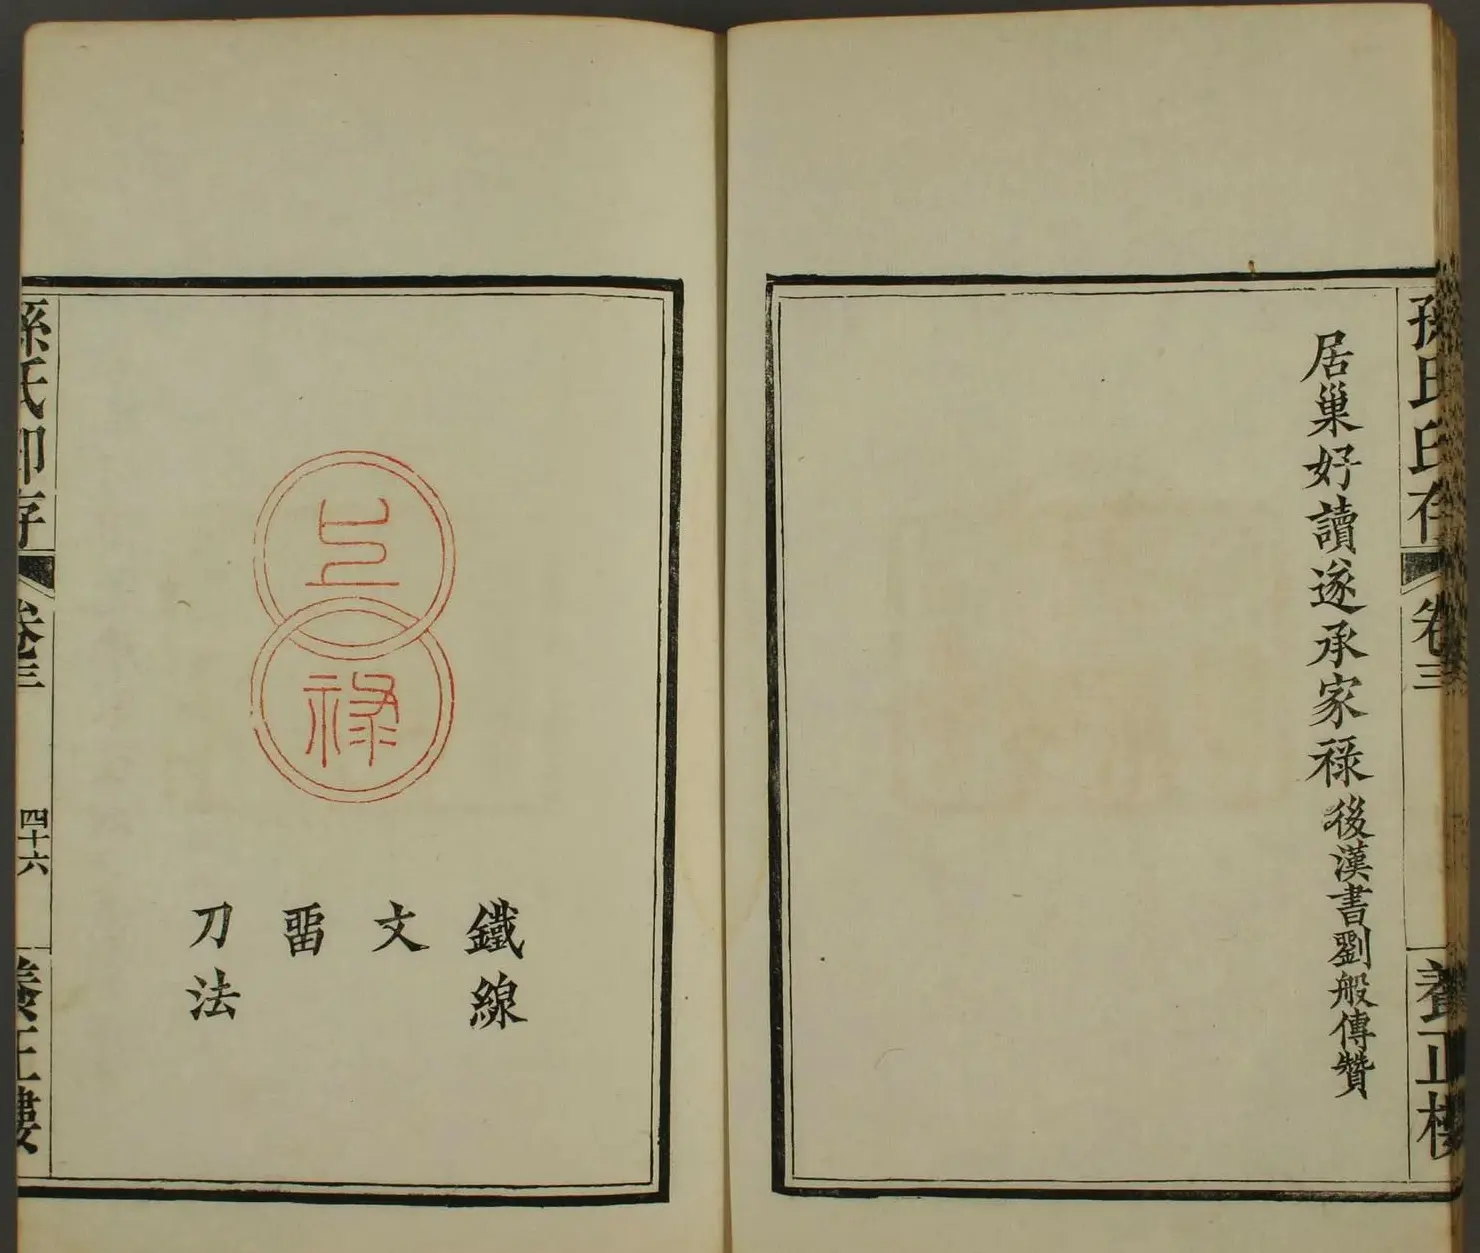 孫氏印存
卷三
養正樓
居巢好讀遂承家祿後漢書劉般傳贊
鐵線
文
畱
刀法
孫氏印存
卷三
四十六
養正樓